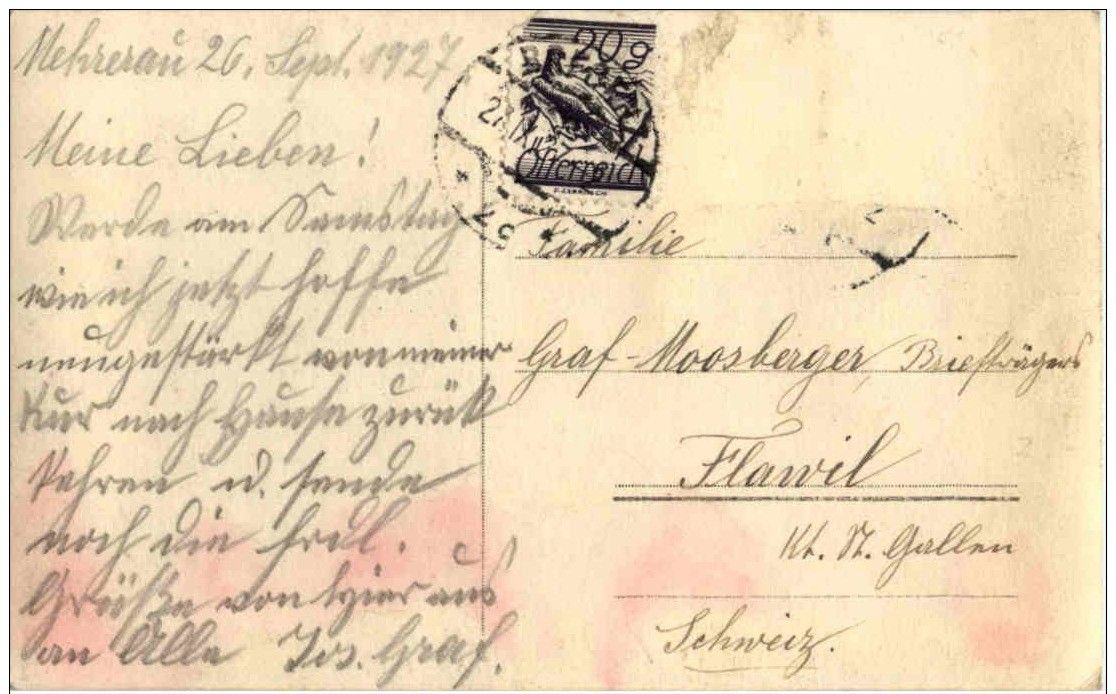 Mehrerau 26. Sept. 1927
Meine Lieben!
Werde am Samstag
wie ich jetzt hoffe
neugestärkt von meiner
Kur nach Hause zurük
kehren u. sende
noch die frdl.
Grüße von hier aus
an Alle Jos. Graf.
20 g
Österreich
27. IX
Familie
Graf-Moosberger, Briefträgers
Flawil
Kt. St. Gallen
Schweiz.